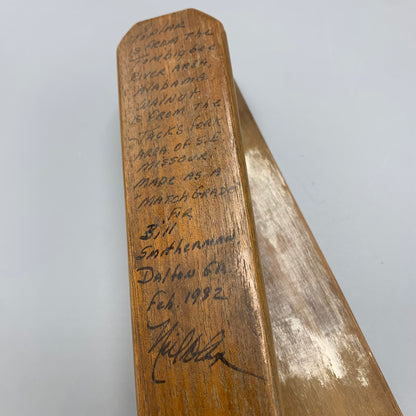 POPLAR
IS FROM THE
TOMBIGBEE
RIVER AREA
ALABAMA
WALNUT
IS FROM THE
JACK'S FORK
AREA OF S.E.
MISSOURI
MADE AS A
MATCH GRADE
FOR
Bill
Smitherman
Dalton GA
Feb. 1992